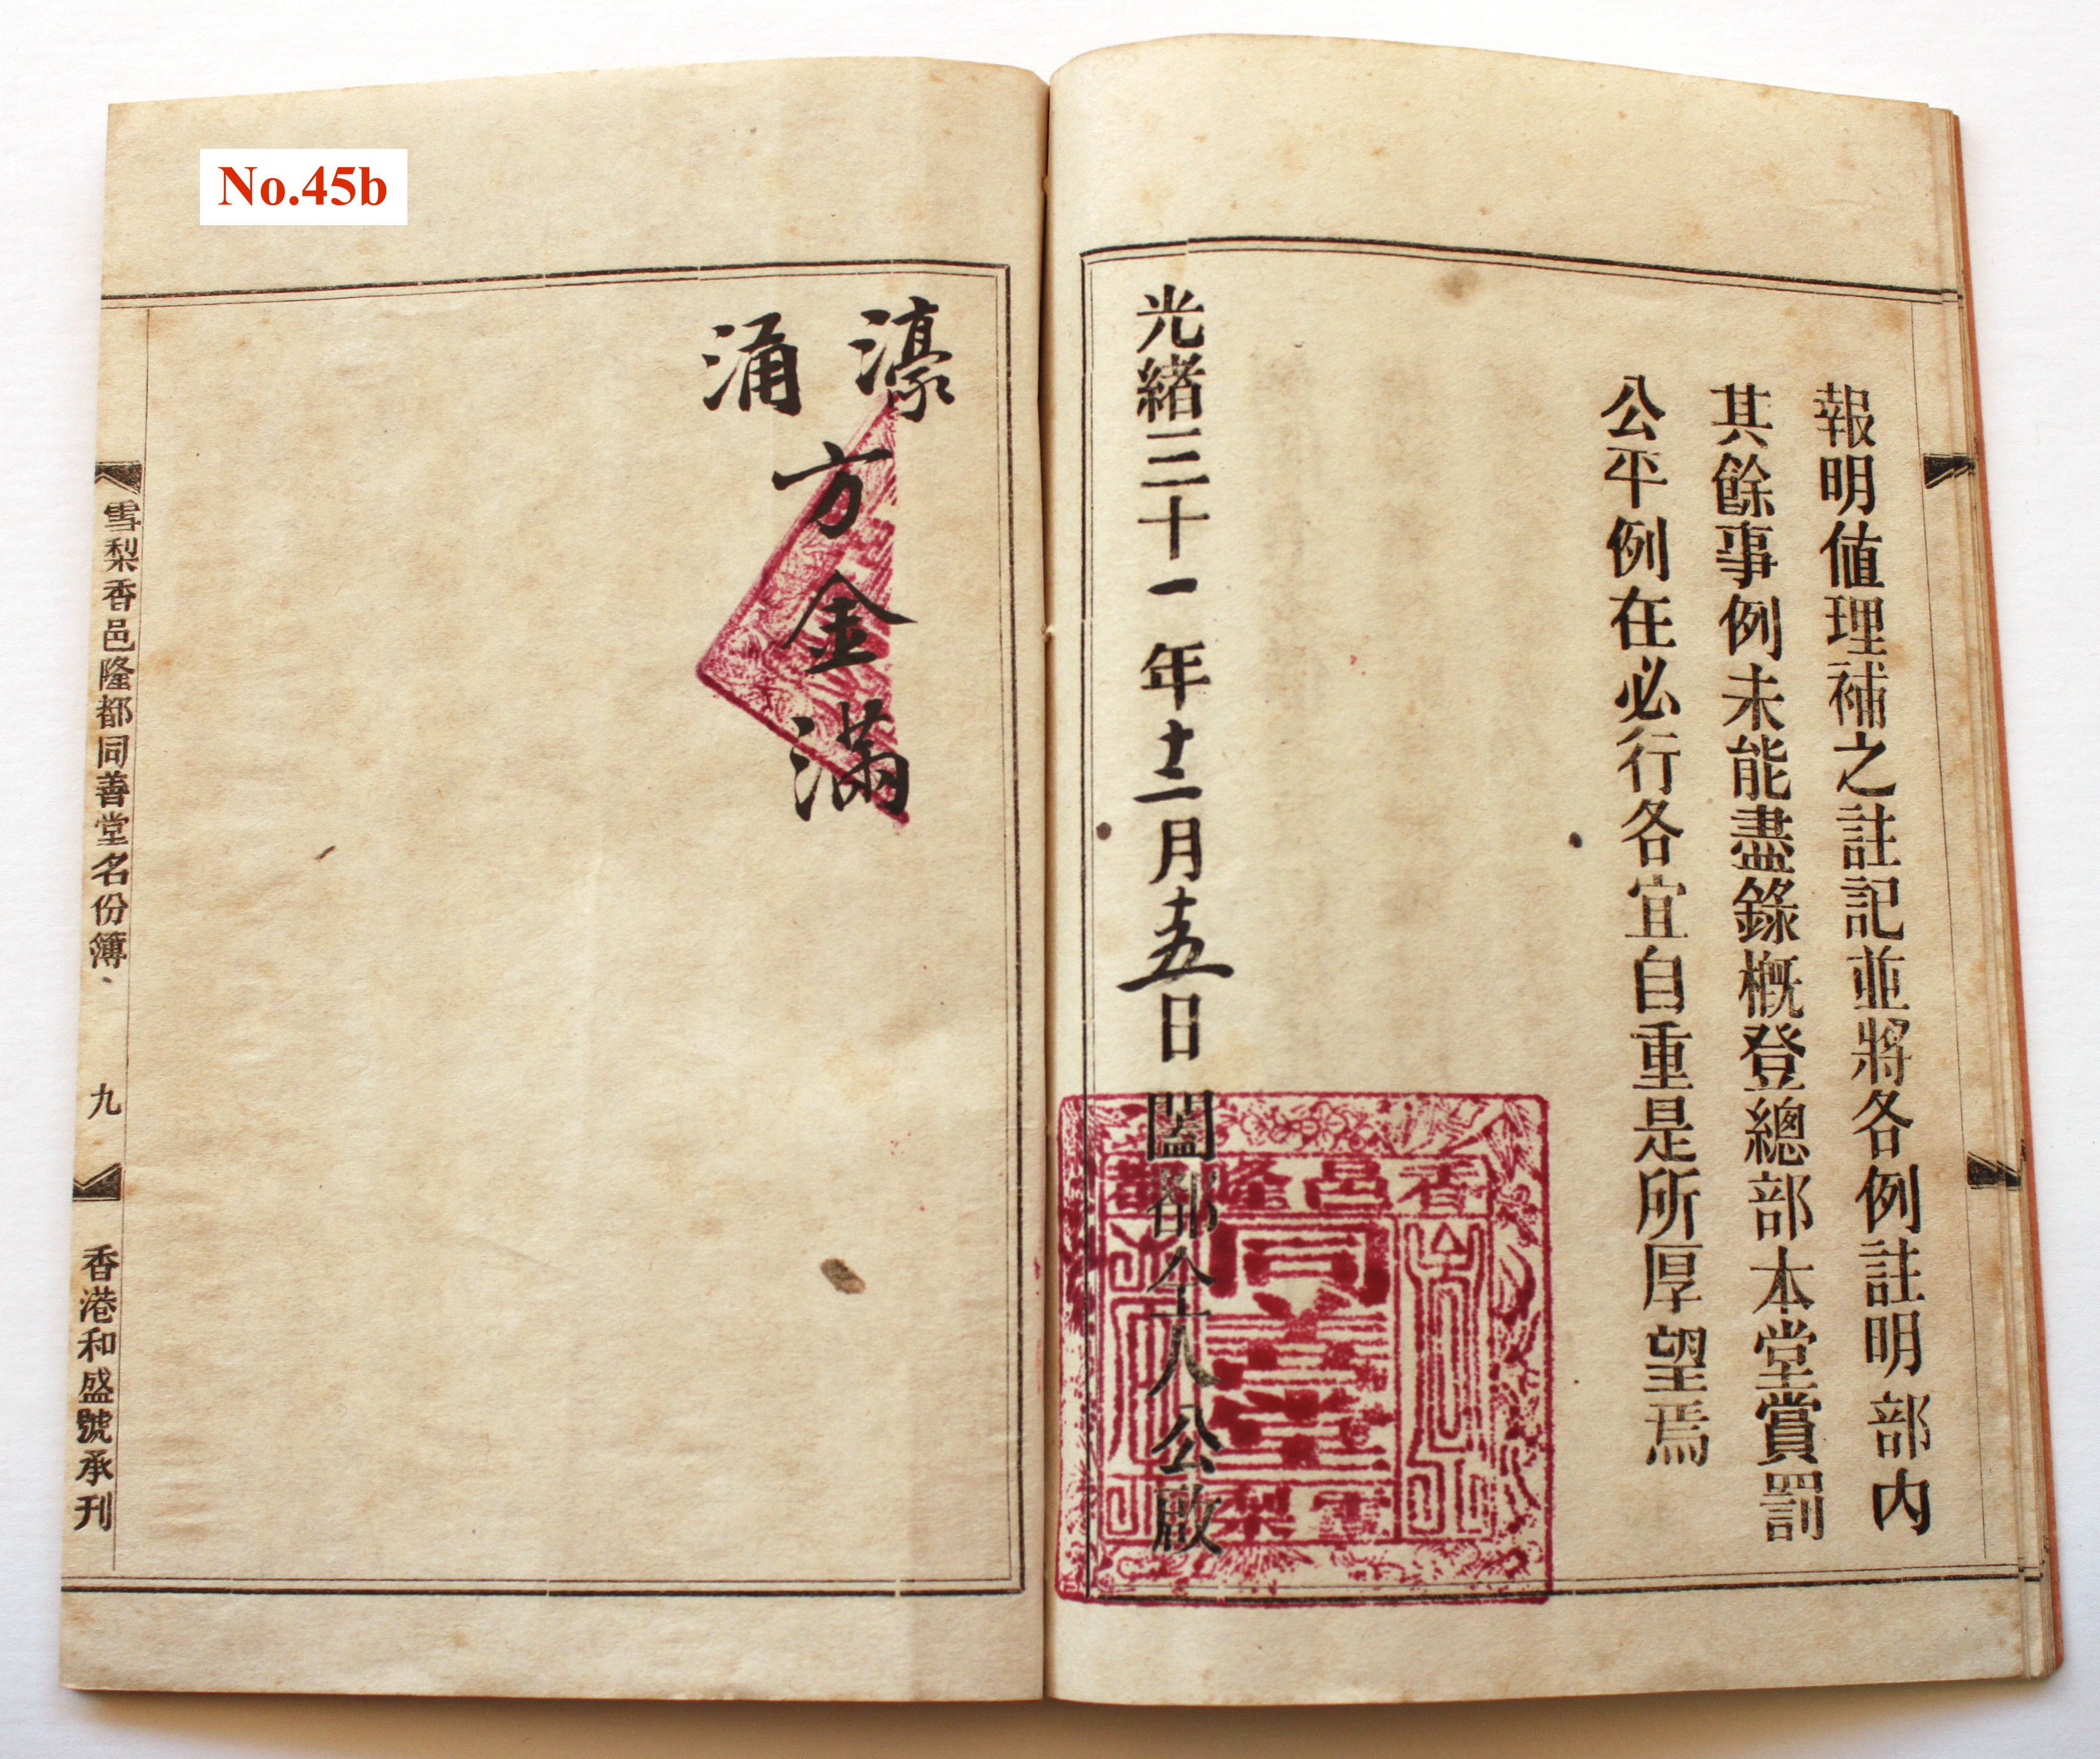 No.45b
報明值理補之註記並將各例註明部内
其餘事例未能盡錄概登總部本堂賞罰
公平例在必行各宜自重是所厚望焉
光緒三十一年十二月十五日闔都仝人公啟
香邑隆都
同善堂
雪梨
濠涌
方金滿
雪梨香邑隆都同善堂名份簿、
九
香港和盛號承刊